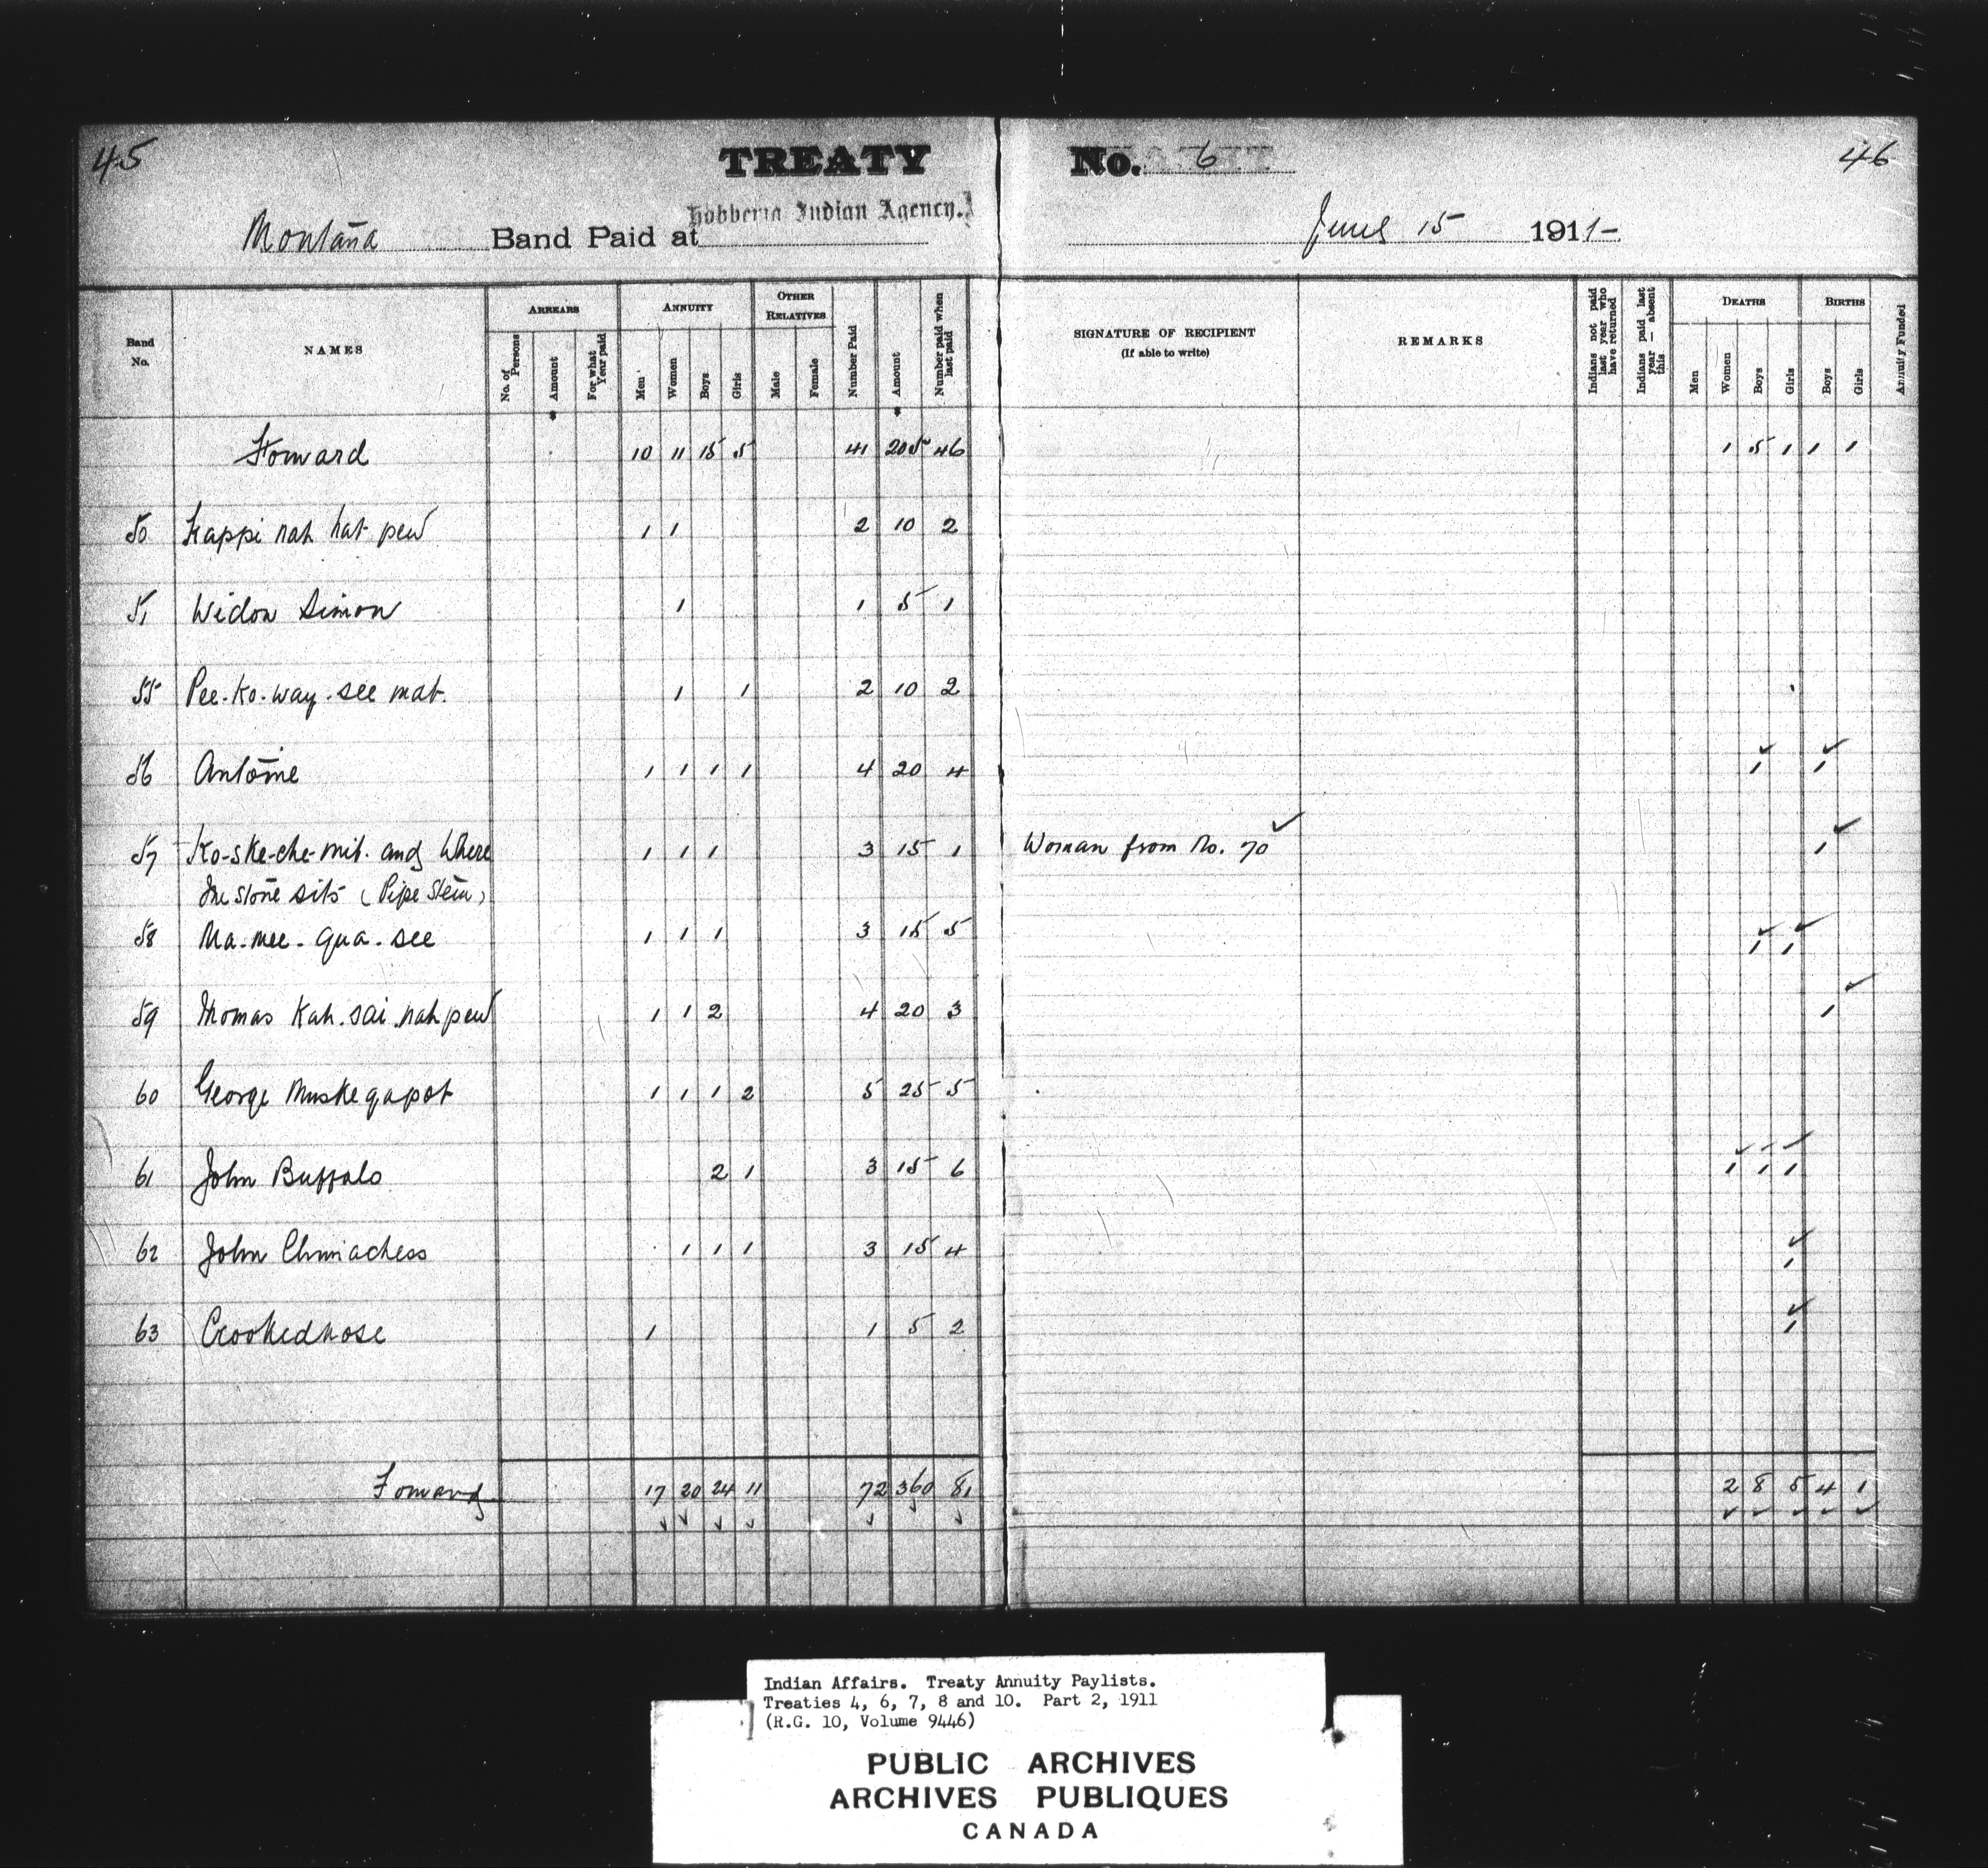 45
TREATY No. 6
46
Hobbema Indian Agency.
Montana Band Paid at June 15 1911-
Band No.
NAMES
ARREARS
No. of Persons
Amount
For what Year paid
ANNUITY
Men
Women
Boys
Girls
OTHER RELATIVES
Male
Female
Number Paid
Amount
Number paid when last paid
SIGNATURE OF RECIPIENT
(If able to write)
REMARKS
Indians not paid last year who have returned
Indians paid last year — absent this.
DEATHS
Men
Women
Boys
Girls
BIRTHS
Boys
Girls
Annuity Funded
Forward 10 11 15 5 41 205 46 1 5 1 1 1
50 Kappi nah hat pew 1 1 2 10 2
51 Widow Simon 1 1 5 1
55 Pee-ko-way-see mat. 1 1 2 10 2
56 Antoine 1 1 1 1 4 20 4 1 1
57 Ko-ske-che-mit. and Where 1 1 1 3 15 1 Woman from No. 70 1
the stone sits (Pipe Stem)
58 Ma-mee-qua-see 1 1 1 3 15 5 1 1
59 Thomas Kah.sai.nah pew 1 1 2 4 20 3 1
60 George Muskegapot 1 1 1 2 5 25 5
61 John Buffalo 2 1 3 15 6 1 1 1
62 John Chimiachess 1 1 1 3 15 4 1
63 Crookednose 1 1 5 2 1
Forward 17 20 24 11 72 360 81 2 8 5 4 1
Indian Affairs. Treaty Annuity Paylists.
Treaties 4, 6, 7, 8 and 10. Part 2, 1911
(R.G. 10, Volume 9446)
PUBLIC ARCHIVES
ARCHIVES PUBLIQUES
CANADA